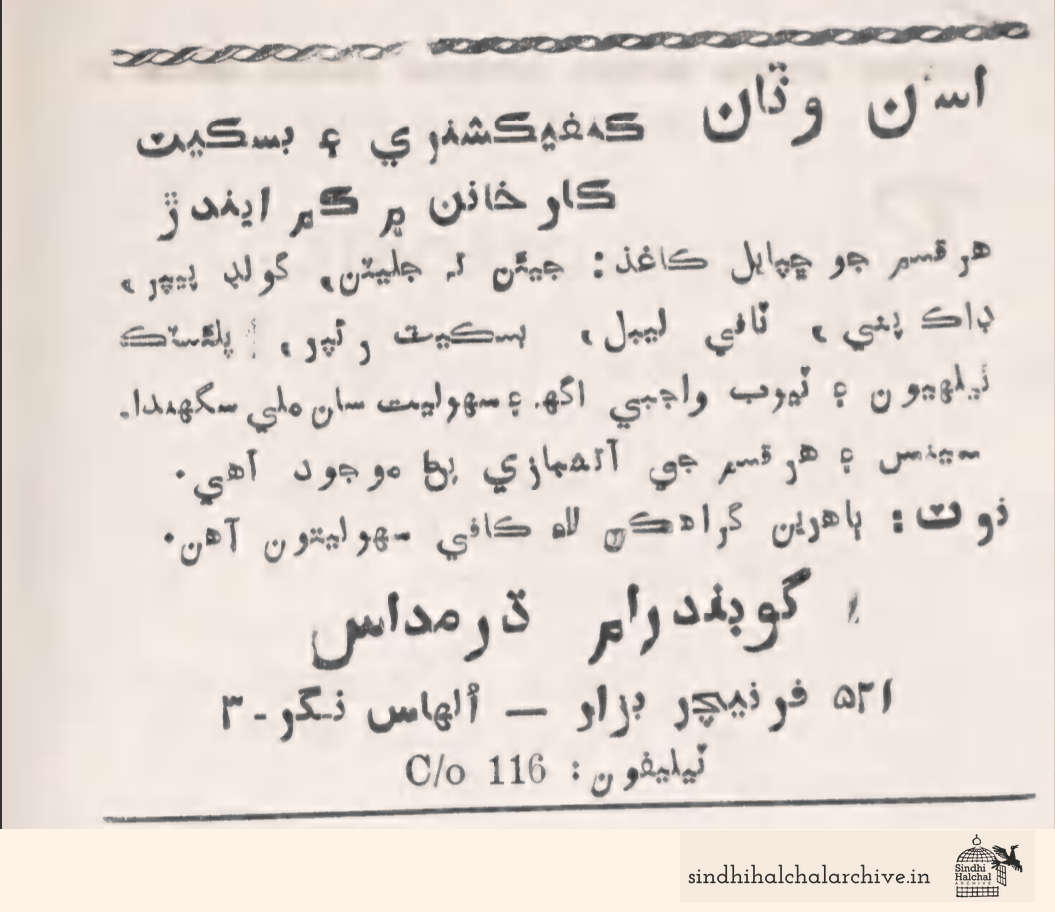 اسان وٽان
ڪنفيڪشنري ۽ بسڪيٽ
ڪارخانن ۾ ڪم ايندڙ
هر قسم جو ڇپايل ڪاغذ: جيئن ته جليٽن، گولڊ پيپر،
ڊاڪ پني، ٽافي ليبل، بسڪيٽ رئپر، پلئسٽڪ
ٿيلهيون ۽ ٽيوب واجبي اگهه ۽ سهوليت سان ملي سگهندا.
۽ هر قسم جي آتشبازي پڻ موجود آهي.
نوٽ: ٻاهرين گراهڪن لاءِ ڪافي سهوليتون آهن.
گوبندرام ڌرمداس
۵۲۱ فرنيچر بزار — اُلهاس نگر-۳
ٽيليفون: C/o 116
sindhihalchalarchive.in
Sindhi
Halchal
ARCHIVE